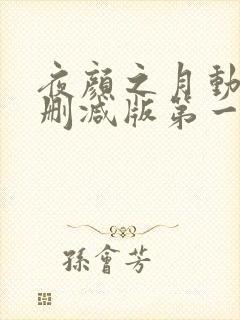 夜顔之月動
刪減版第一
孫會芳